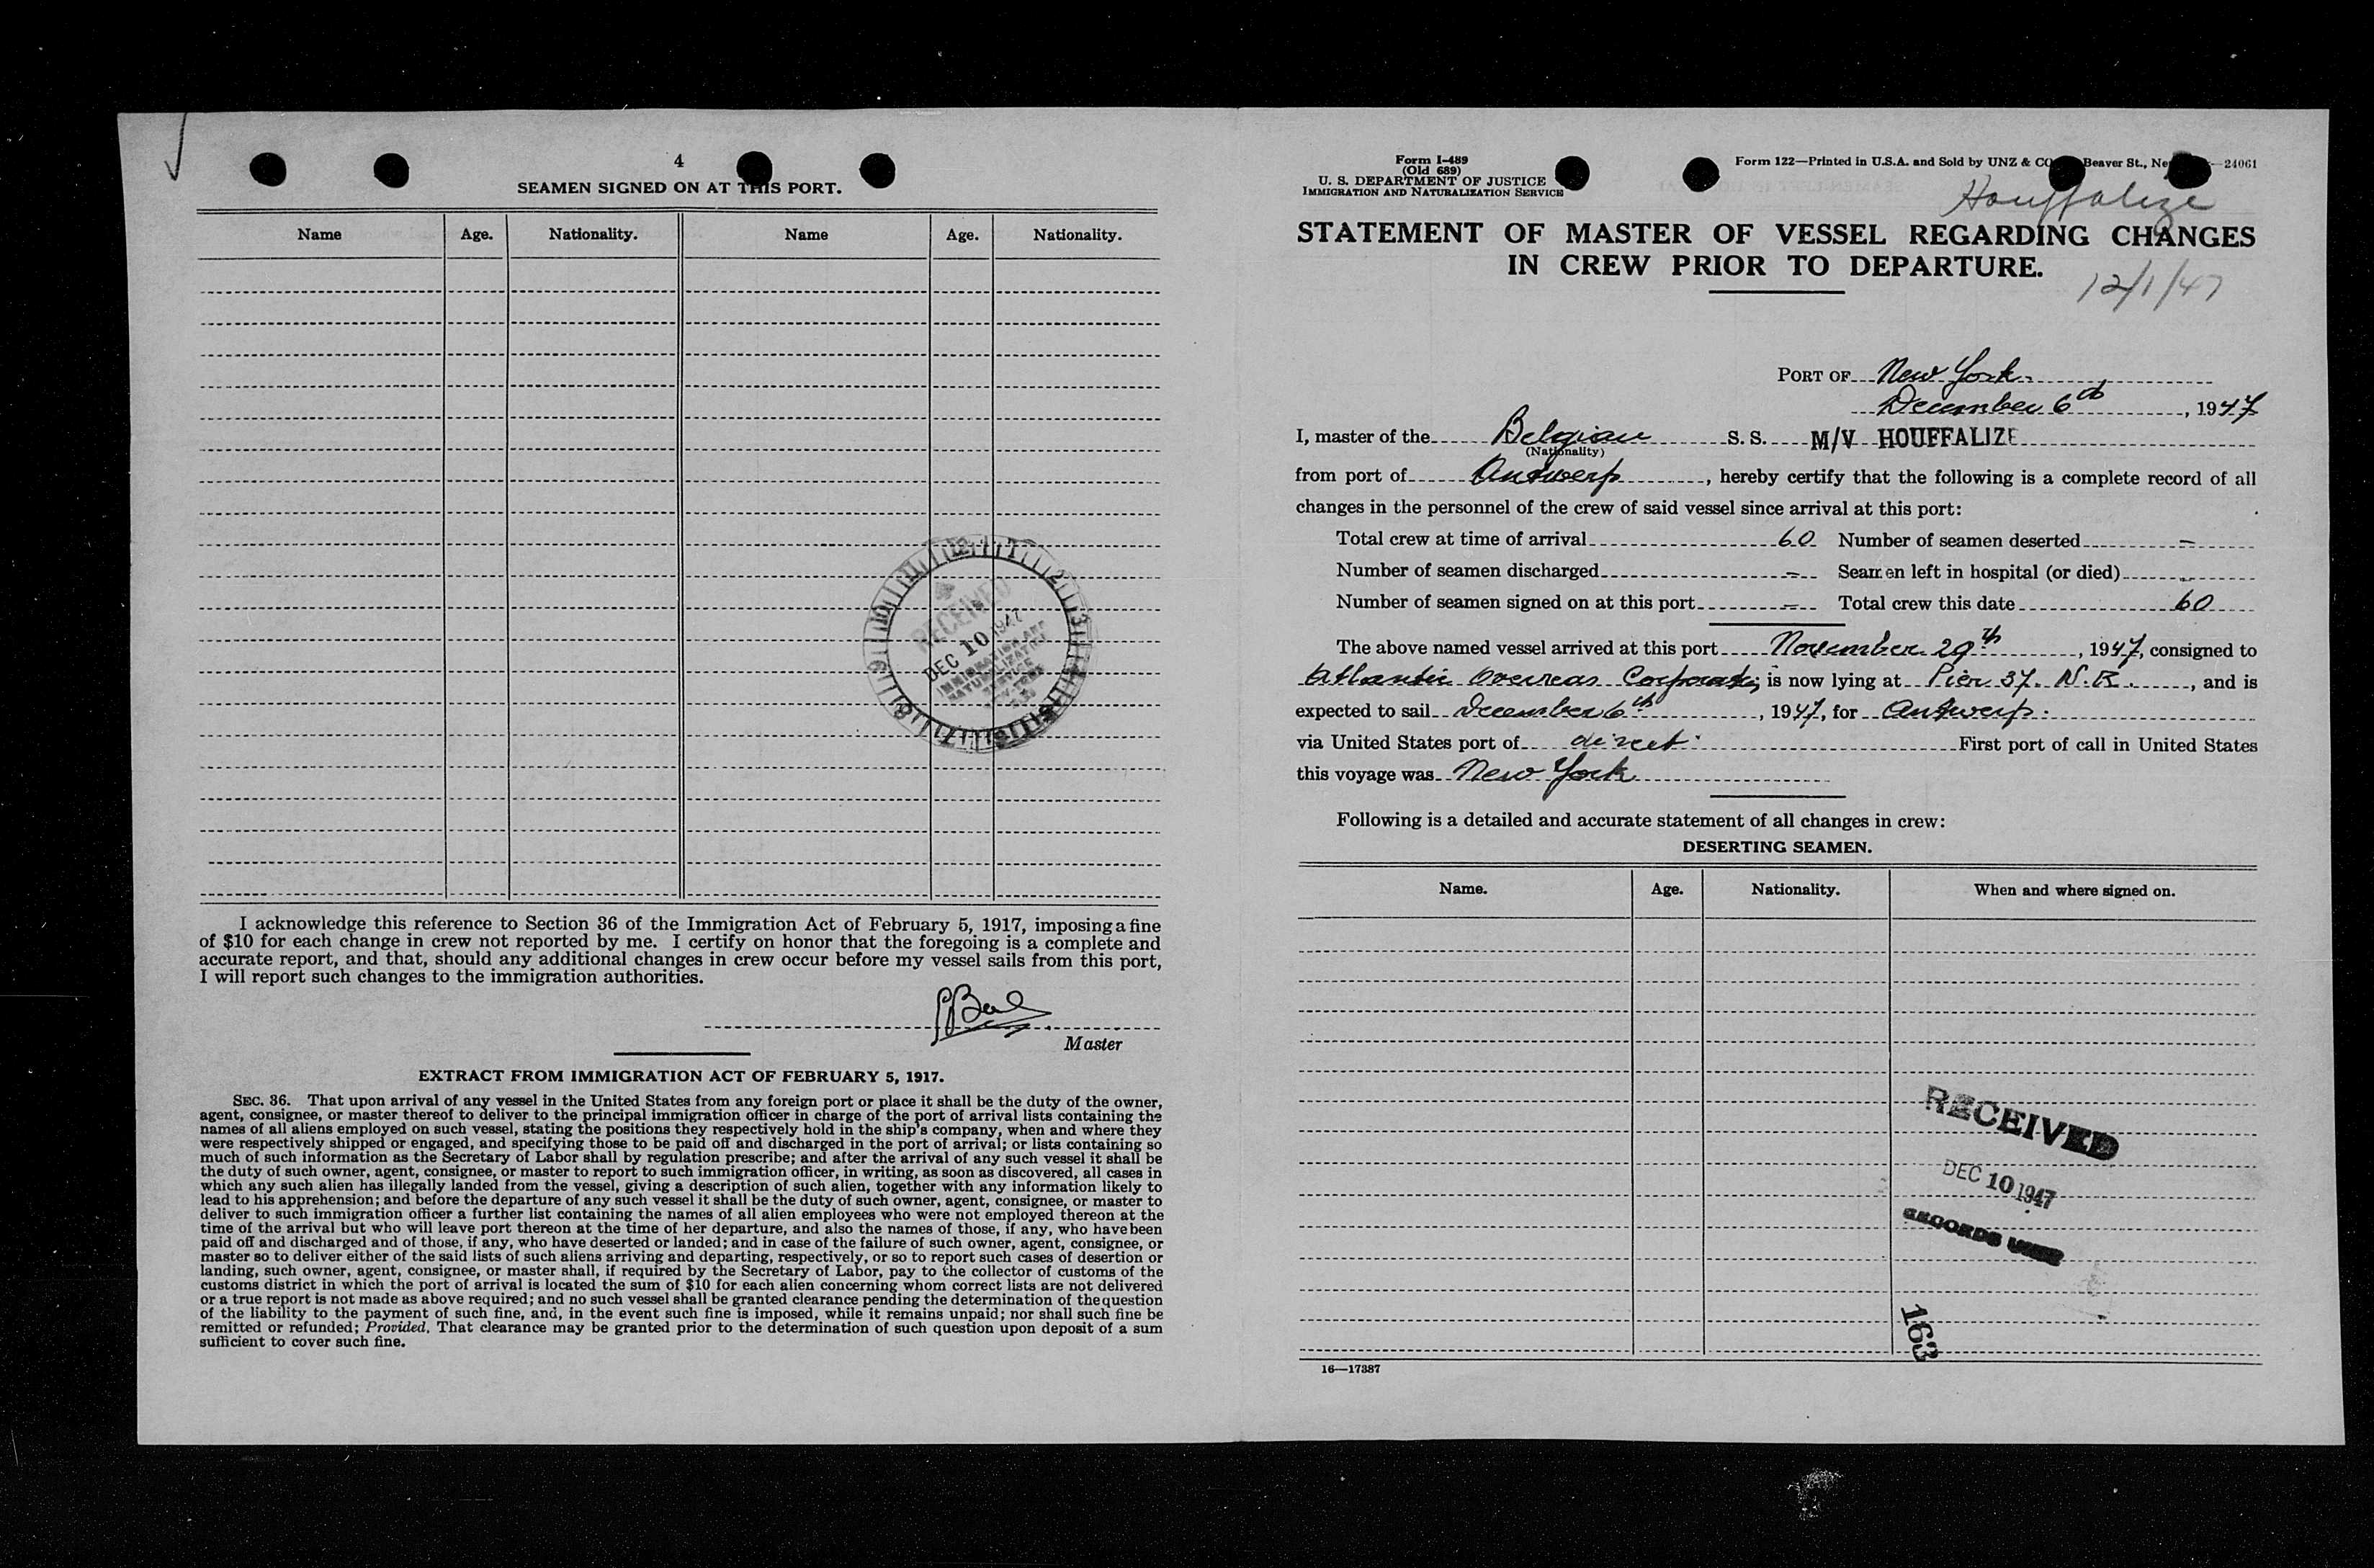 4
SEAMEN SIGNED ON AT THIS PORT.
Name Age. Nationality. Name Age. Nationality.
RECEIVED
DEC 10 1947
IMMIGRATION AND
NATURALIZATION
SERVICE
I acknowledge this reference to Section 36 of the Immigration Act of February 5, 1917, imposing a fine
of $10 for each change in crew not reported by me. I certify on honor that the foregoing is a complete and
accurate report, and that, should any additional changes in crew occur before my vessel sails from this port,
I will report such changes to the immigration authorities.
Master
EXTRACT FROM IMMIGRATION ACT OF FEBRUARY 5, 1917.
SEC. 36. That upon arrival of any vessel in the United States from any foreign port or place it shall be the duty of the owner,
agent, consignee, or master thereof to deliver to the principal immigration officer in charge of the port of arrival lists containing the
names of all aliens employed on such vessel, stating the positions they respectively hold in the ship's company, when and where they
were respectively shipped or engaged, and specifying those to be paid off and discharged in the port of arrival; or lists containing so
much of such information as the Secretary of Labor shall by regulation prescribe; and after the arrival of any such vessel it shall be
the duty of such owner, agent, consignee, or master to report to such immigration officer, in writing, as soon as discovered, all cases in
which any such alien has illegally landed from the vessel, giving a description of such alien, together with any information likely to
lead to his apprehension; and before the departure of any such vessel it shall be the duty of such owner, agent, consignee, or master to
deliver to such immigration officer a further list containing the names of all alien employees who were not employed thereon at the
time of the arrival but who will leave port thereon at the time of her departure, and also the names of those, if any, who have been
paid off and discharged and of those, if any, who have deserted or landed; and in case of the failure of such owner, agent, consignee, or
master so to deliver either of the said lists of such aliens arriving and departing, respectively, or so to report such cases of desertion or
landing, such owner, agent, consignee, or master shall, if required by the Secretary of Labor, pay to the collector of customs of the
customs district in which the port of arrival is located the sum of $10 for each alien concerning whom correct lists are not delivered
or a true report is not made as above required; and no such vessel shall be granted clearance pending the determination of the question
of the liability to the payment of such fine, and, in the event such fine is imposed, while it remains unpaid; nor shall such fine be
remitted or refunded; Provided, That clearance may be granted prior to the determination of such question upon deposit of a sum
sufficient to cover such fine.
Form I-489
(Old 689)
U. S. DEPARTMENT OF JUSTICE
IMMIGRATION AND NATURALIZATION SERVICE
Form 122—Printed in U.S.A. and Sold by UNZ & CO Beaver St., Ne —24061
Houffalize
STATEMENT OF MASTER OF VESSEL REGARDING CHANGES
IN CREW PRIOR TO DEPARTURE.
12/1/47
PORT OF New York.
December 6th, 1947
I, master of the Belgian S. S. M/V HOUFFALIZE
(Nationality)
from port of Antwerp, hereby certify that the following is a complete record of all
changes in the personnel of the crew of said vessel since arrival at this port:
Total crew at time of arrival 60 Number of seamen deserted —
Number of seamen discharged — Seamen left in hospital (or died) —
Number of seamen signed on at this port — Total crew this date 60
The above named vessel arrived at this port November 29th, 1947, consigned to
Atlantic Overseas Corporation; is now lying at Pier 37. N.R., and is
expected to sail December 6th, 1947, for Antwerp.
via United States port of direct. First port of call in United States
this voyage was New York
Following is a detailed and accurate statement of all changes in crew:
DESERTING SEAMEN.
Name. Age. Nationality. When and where signed on.
RECEIVED
DEC 10 1947
RECORDS UNIT
163
16—17387